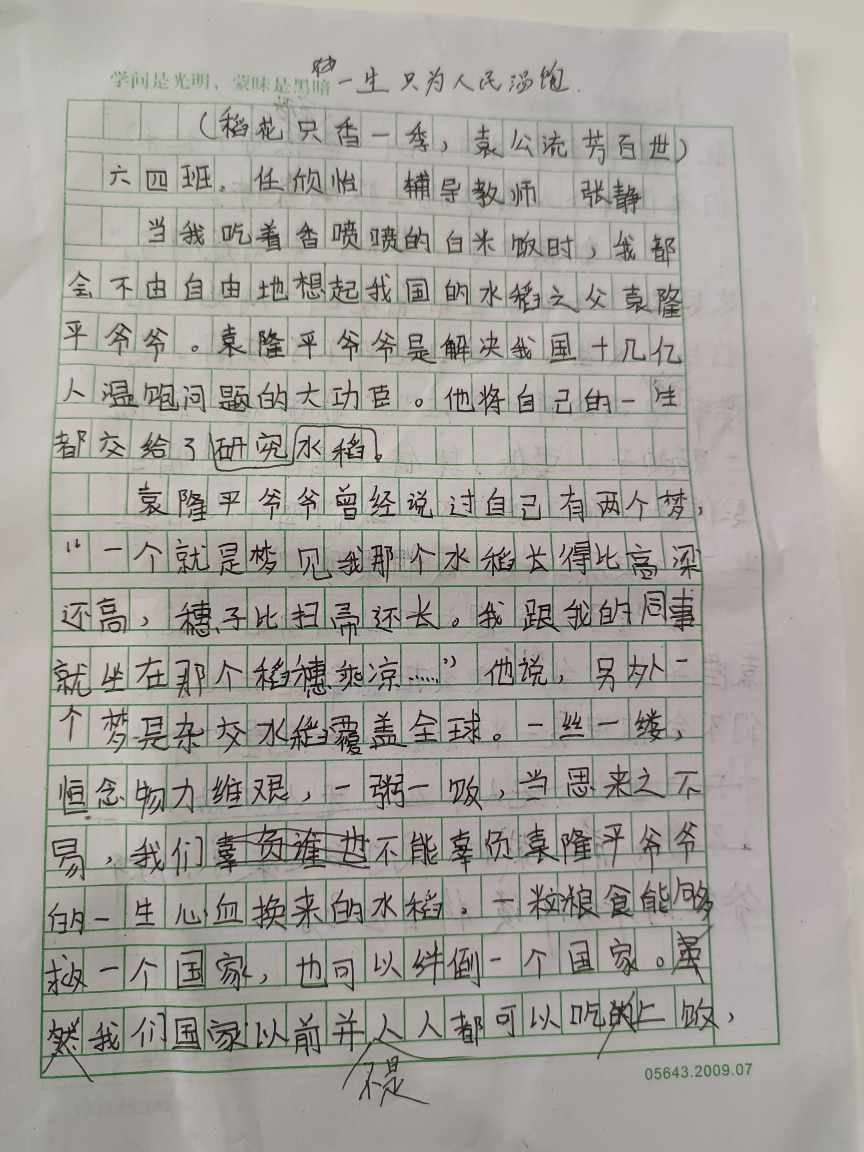 学问是光明，蒙昧是黑暗 一生只为人民温饱
（稻花只香一季，袁公流芳百世）
六四班．任欣怡 辅导教师 张静
当我吃着香喷喷的白米饭时，我都
会不由自由地想起我国的水稻之父袁隆
平爷爷。袁隆平爷爷是解决我国十几亿
人温饱问题的大功臣。他将自己的一生
都交给了研究水稻。
袁隆平爷爷曾经说过自己有两个梦，
“一个就是梦见我那个水稻长得比高深
还高，穗子比扫帚还长。我跟我的同事
就坐在那个稻穗乘凉……”他说，另外一
个梦是杂交水稻覆盖全球。一丝一缕，
恒念物力维艰，一粥一饭，当思来之不
易，我们辜负谁也不能辜负袁隆平爷爷
的一生心血换来的水稻．一粒粮食能够
救一个国家，也可以绊倒一个国家。虽
然我们国家以前并人人都可以吃的上饭，
不是
05643.2009.07